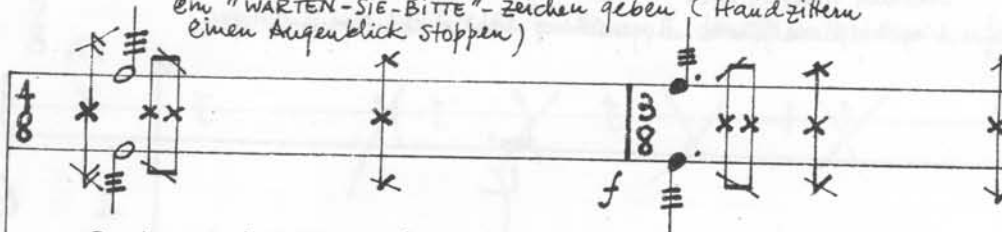 ein "WARTEN-SIE-BITTE"-Zeichen geben (Handzittern
einen Augenblick stoppen)
4 3
8 8
f